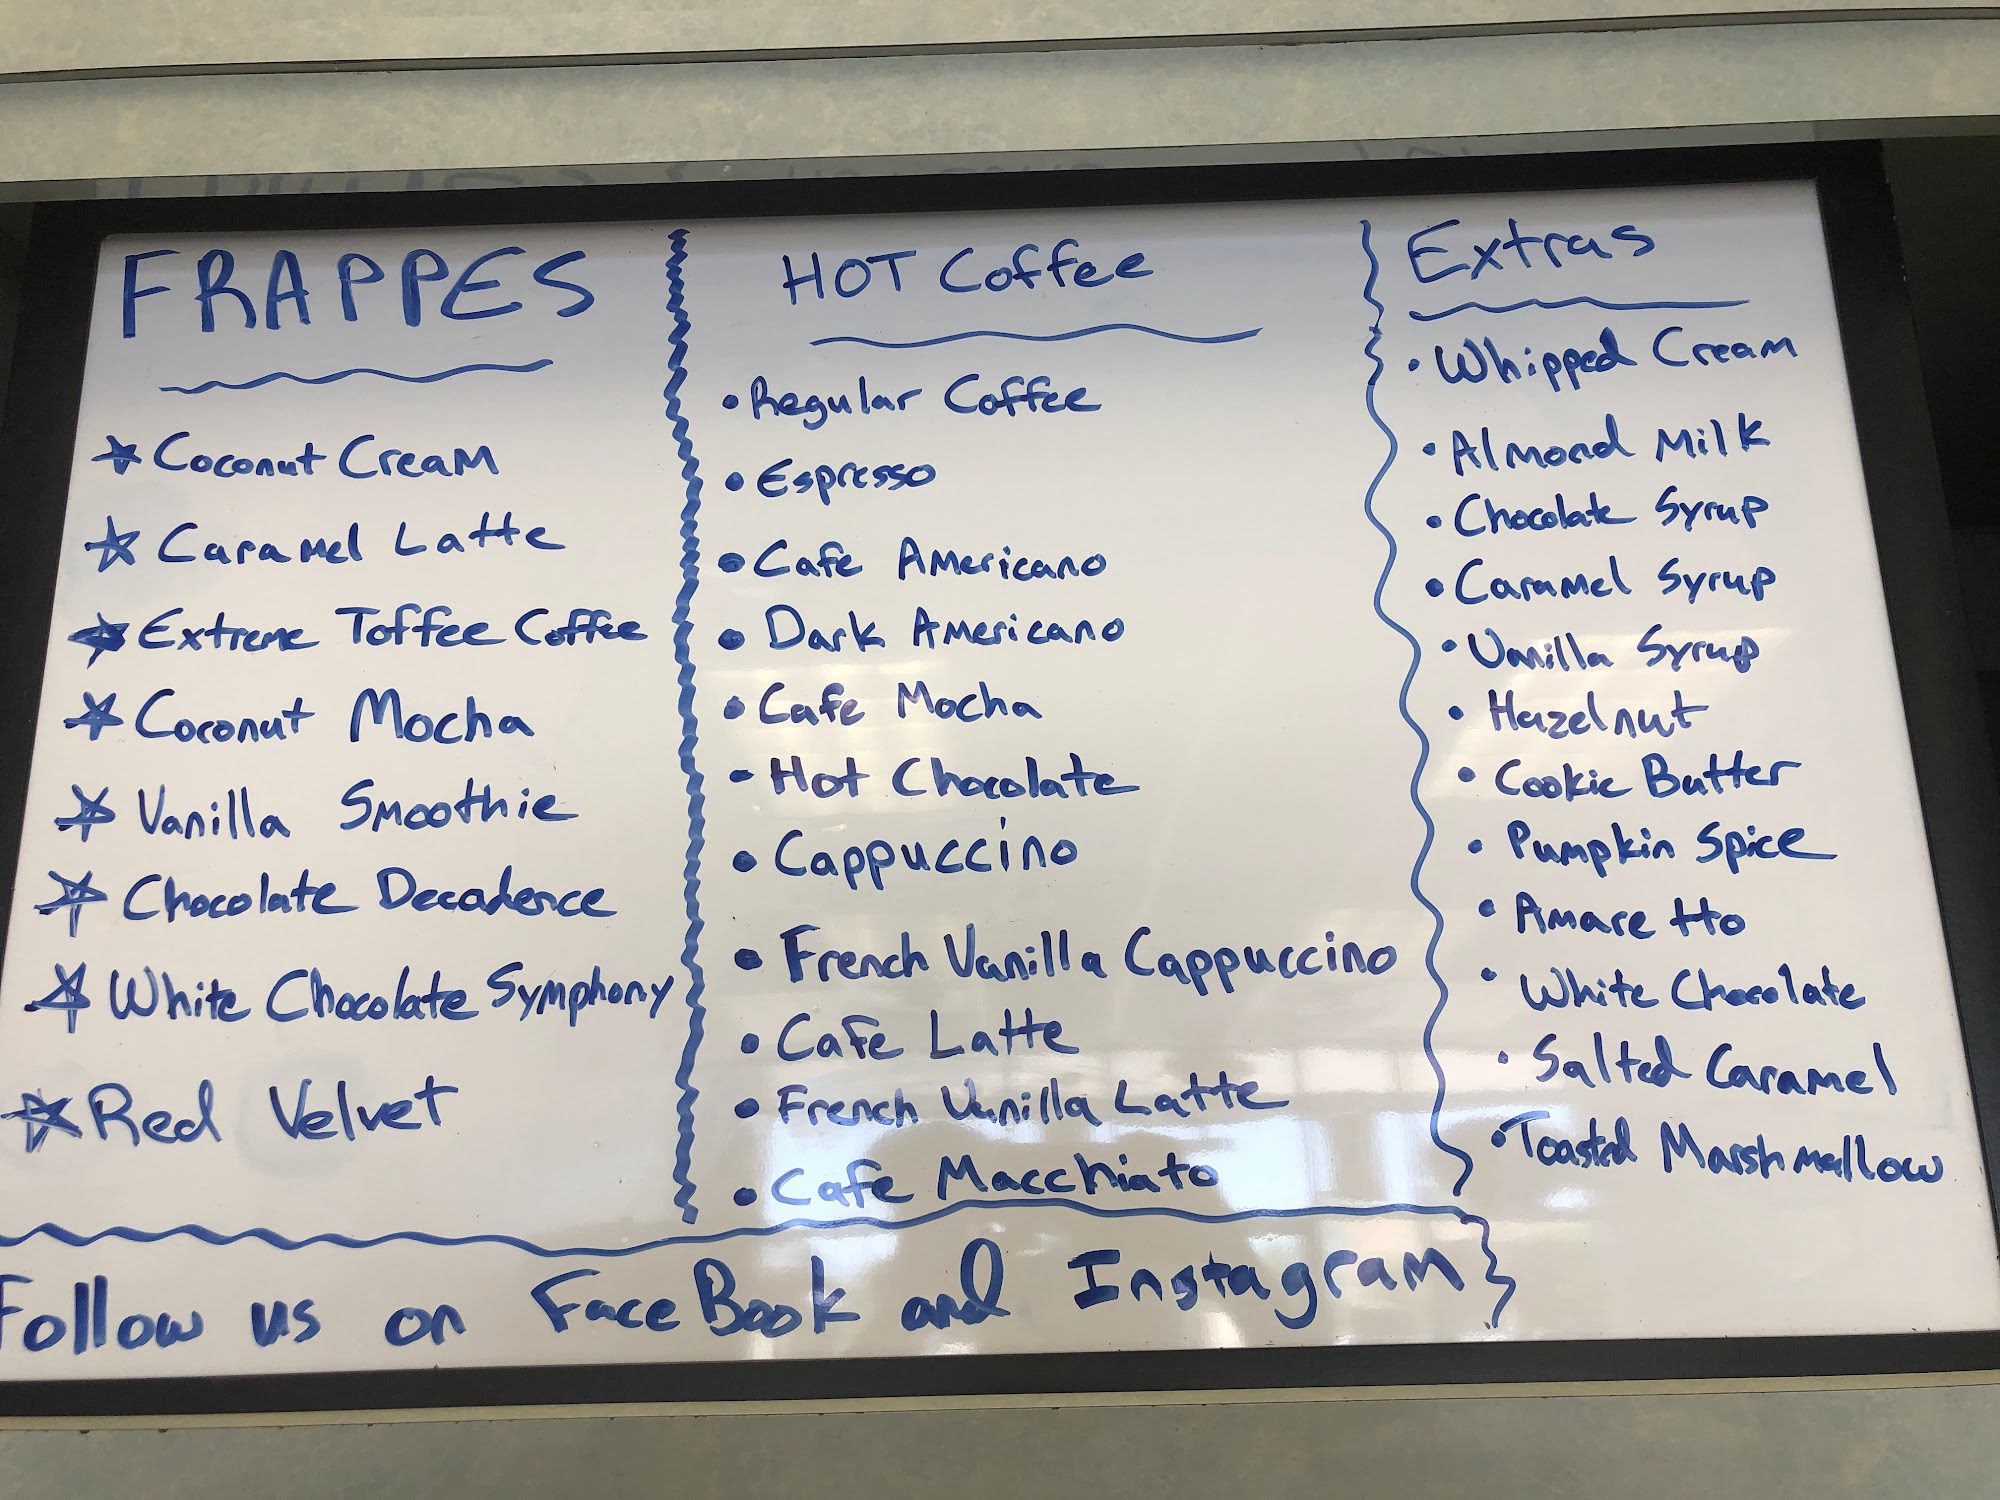 FRAPPES
Coconut Cream
Caramel Latte
Extreme Toffee Coffee
Coconut Mocha
Vanilla Smoothie
Chocolate Decadence
White Chocolate Symphony
Red Velvet
HOT Coffee
Regular Coffee
Espresso
Cafe Americano
Dark Americano
Cafe Mocha
Hot Chocolate
Cappuccino
French Vanilla Cappuccino
Cafe Latte
French Vanilla Latte
Cafe Macchiato
Extras
Whipped Cream
Almond Milk
Chocolate Syrup
Caramel Syrup
Vanilla Syrup
Hazelnut
Cookie Butter
Pumpkin Spice
Amaretto
White Chocolate
Salted Caramel
Toasted Marshmallow
Follow us on FaceBook and Instagram